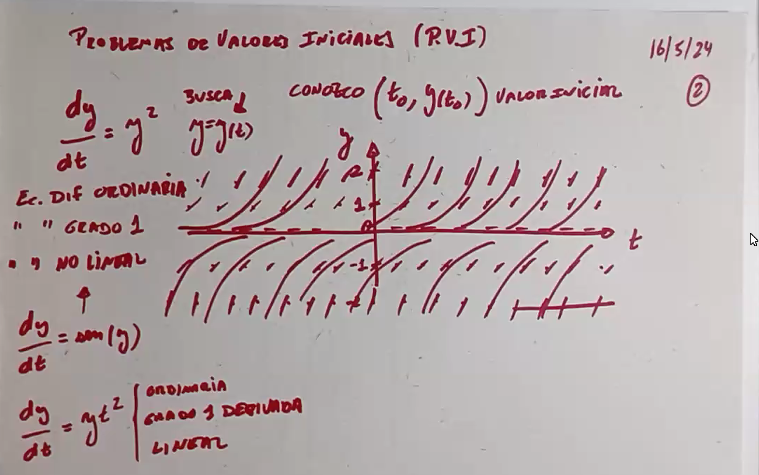 PROBLEMAS DE VALORES INICIALES (P.V.I)
16/5/24
2
dy/dt = y² BUSCA y=y(t) CONOZCO (t₀, y(t₀)) VALOR INICIAL
y
2
1
0
t
-1
Ec. Dif ORDINARIA
" " GRADO 1
" " NO LINEAL
dy/dt = sen(y)
dy/dt = yt² ORDINARIA
GRADO 1 DERIVADA
LINEAL